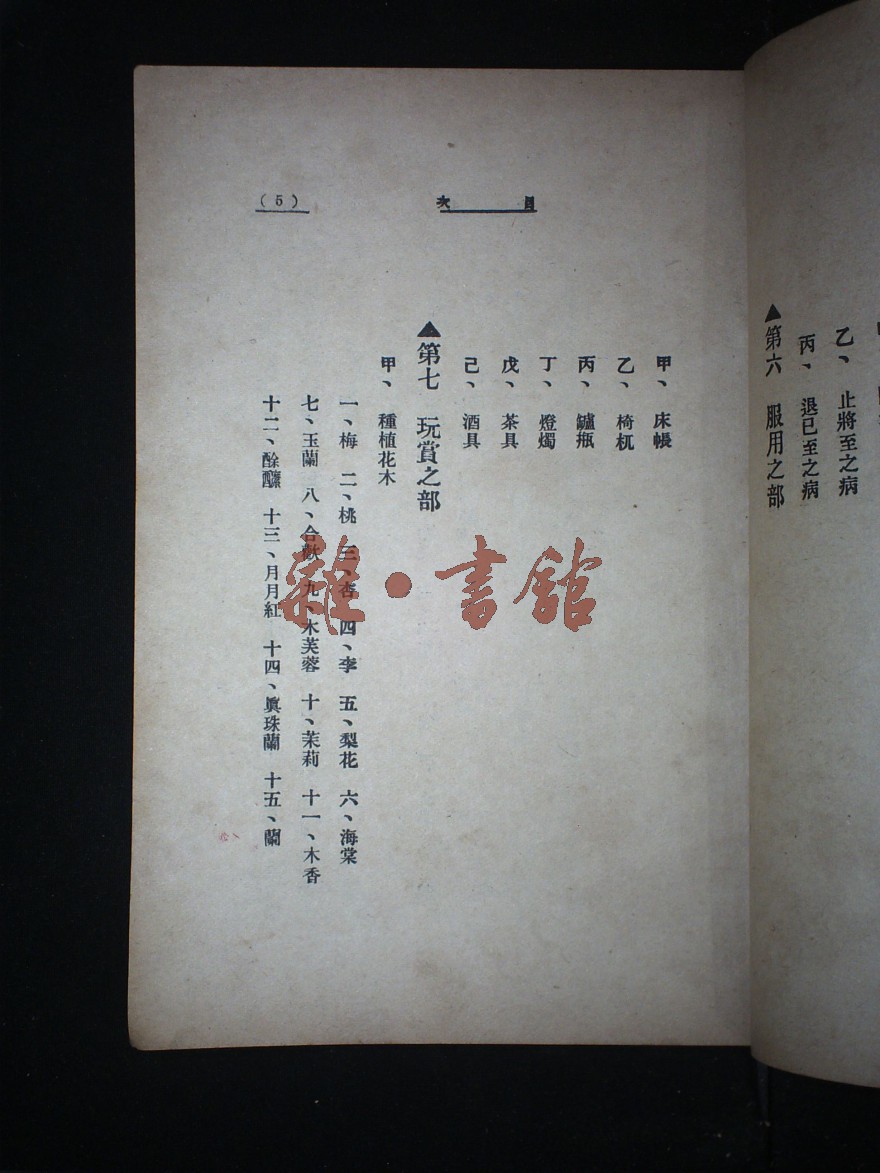 乙、 止將至之病
丙、 退已至之病
▲第六 服用之部
目 次
(5)
甲、 床帳
乙、 椅杌
丙、 罏瓶
丁、 燈燭
戊、 茶具
己、 酒具
▲第七 玩賞之部
甲、 種植花木
一、梅 二、桃 三、杏 四、李 五、梨花 六、海棠
七、玉蘭 八、合歡 九、木芙蓉 十、茉莉 十一、木香
十二、酴醾 十三、月月紅 十四、眞珠蘭 十五、蘭
雜·書館